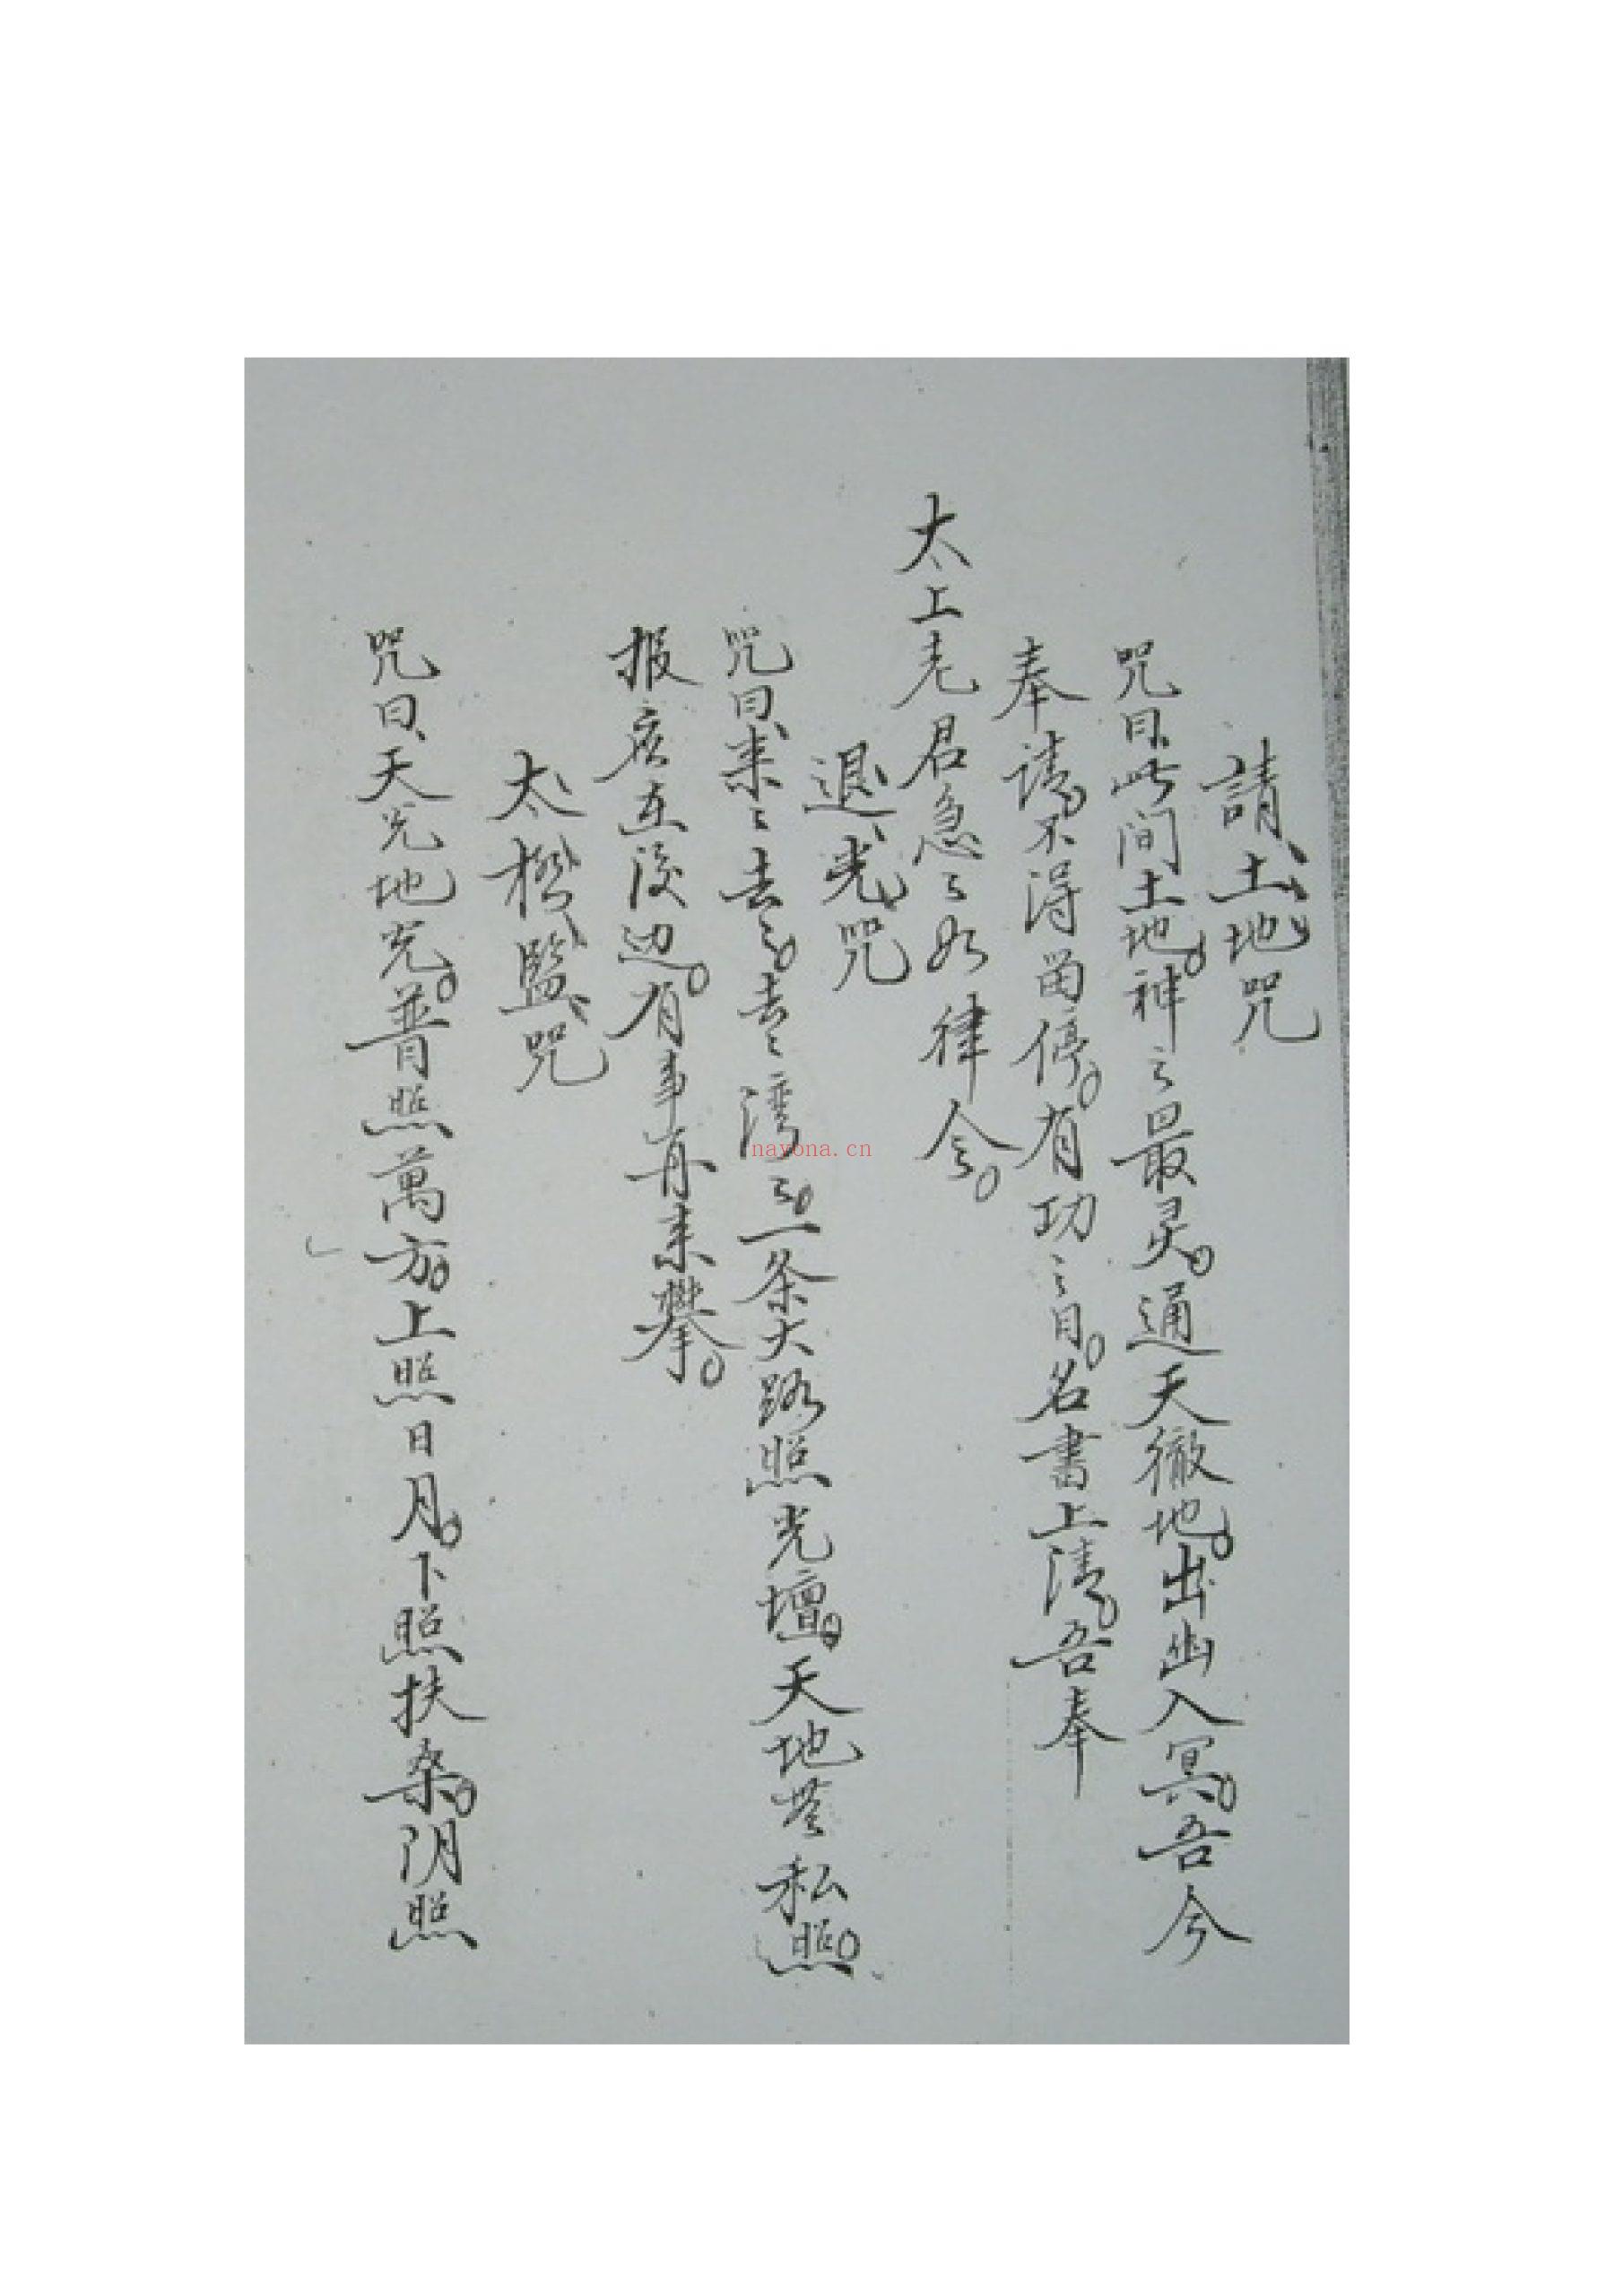 請土地咒
咒曰、此间土地。神之最灵。通天徹地。出幽入冥。吾今
奉请。不得留停。有功之日。名書上清。吾奉
太上老君急〻如律令。
退光咒
咒曰、来〻去〻。去〻湾〻。一条大路照光壇。天地共私照。
报应在后边。有事再来攀。
太極監咒
咒曰、天光地光。普照萬方。上照日月。下照扶桑。阴照
nayona.cn